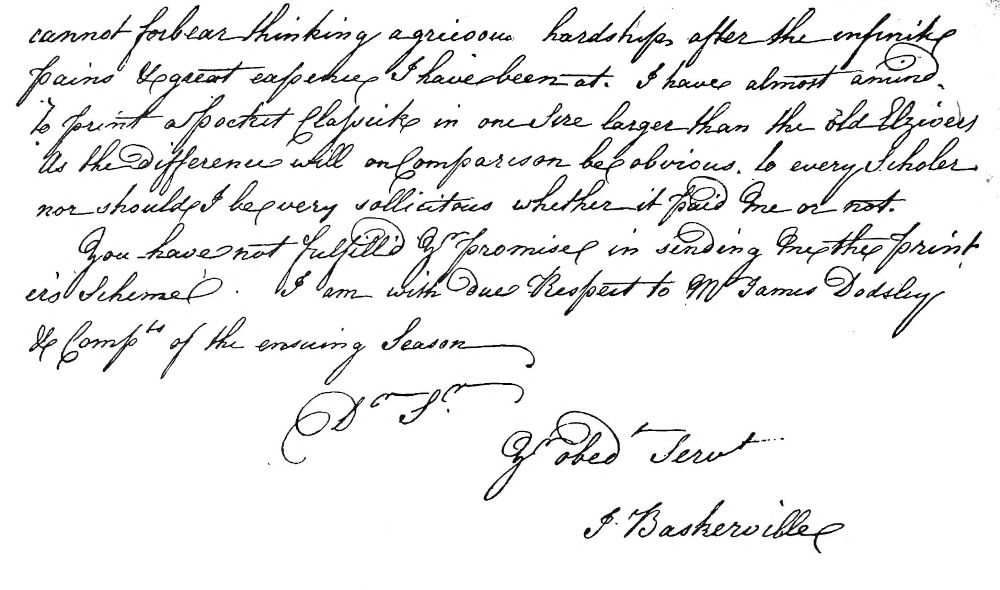 cannot forbear thinking a grievous hardship after the infinite
pains & great expence I have been at. I have almost a mind
to print a Pocket Classick in one Size larger than the old Elzivers
as the difference will on Comparison be obvious to every Scholer
nor should I be very sollicitous whether it paid me or not.
You have not fulfill'd Yr promise in sending me the print
ers Scheme. I am with due Respect to Mr James Dodsley
& Compts of the ensuing Season
Dr Sr
Yr obedt Servt
J. Baskerville